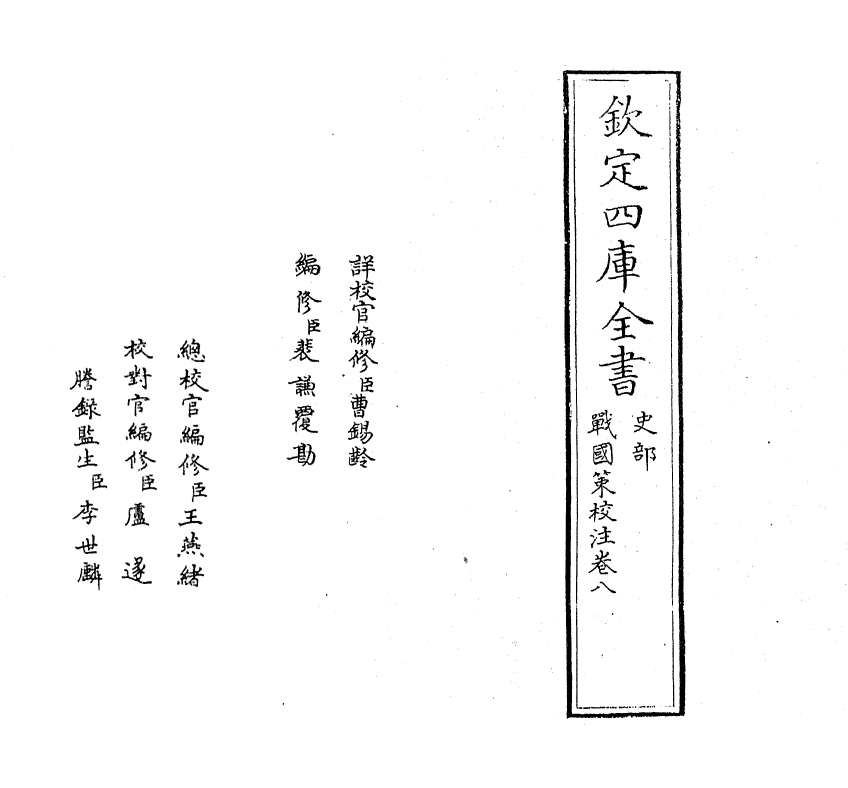 欽定四庫全書
史部
戰國策校注卷八
詳校官編修臣曹錫齡
編修臣裴謙覆勘
總校官編修臣王燕緒
校對官編修臣盧遂
謄錄監生臣李世麟